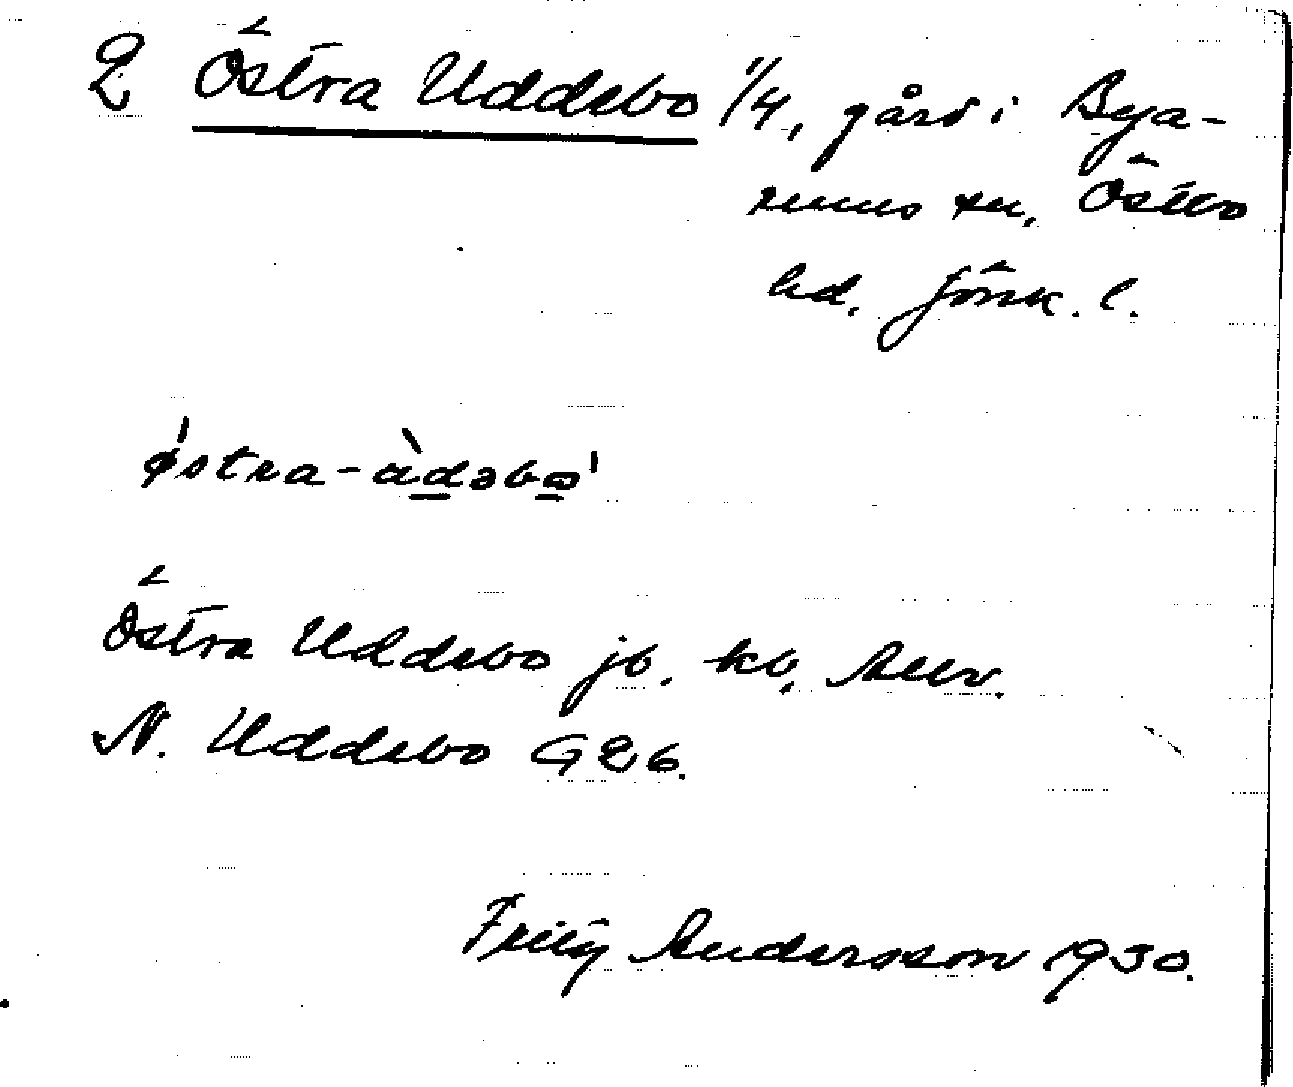 2 Östra Uddebo 1/4, gård i Bya-
rums sn, Östbo
hd, Jönk. l.
ǿstra-àdəbo'
Östra Uddebo jb. kb, Allv.
N. Uddebo G26.
Fritz Andersson 1930.